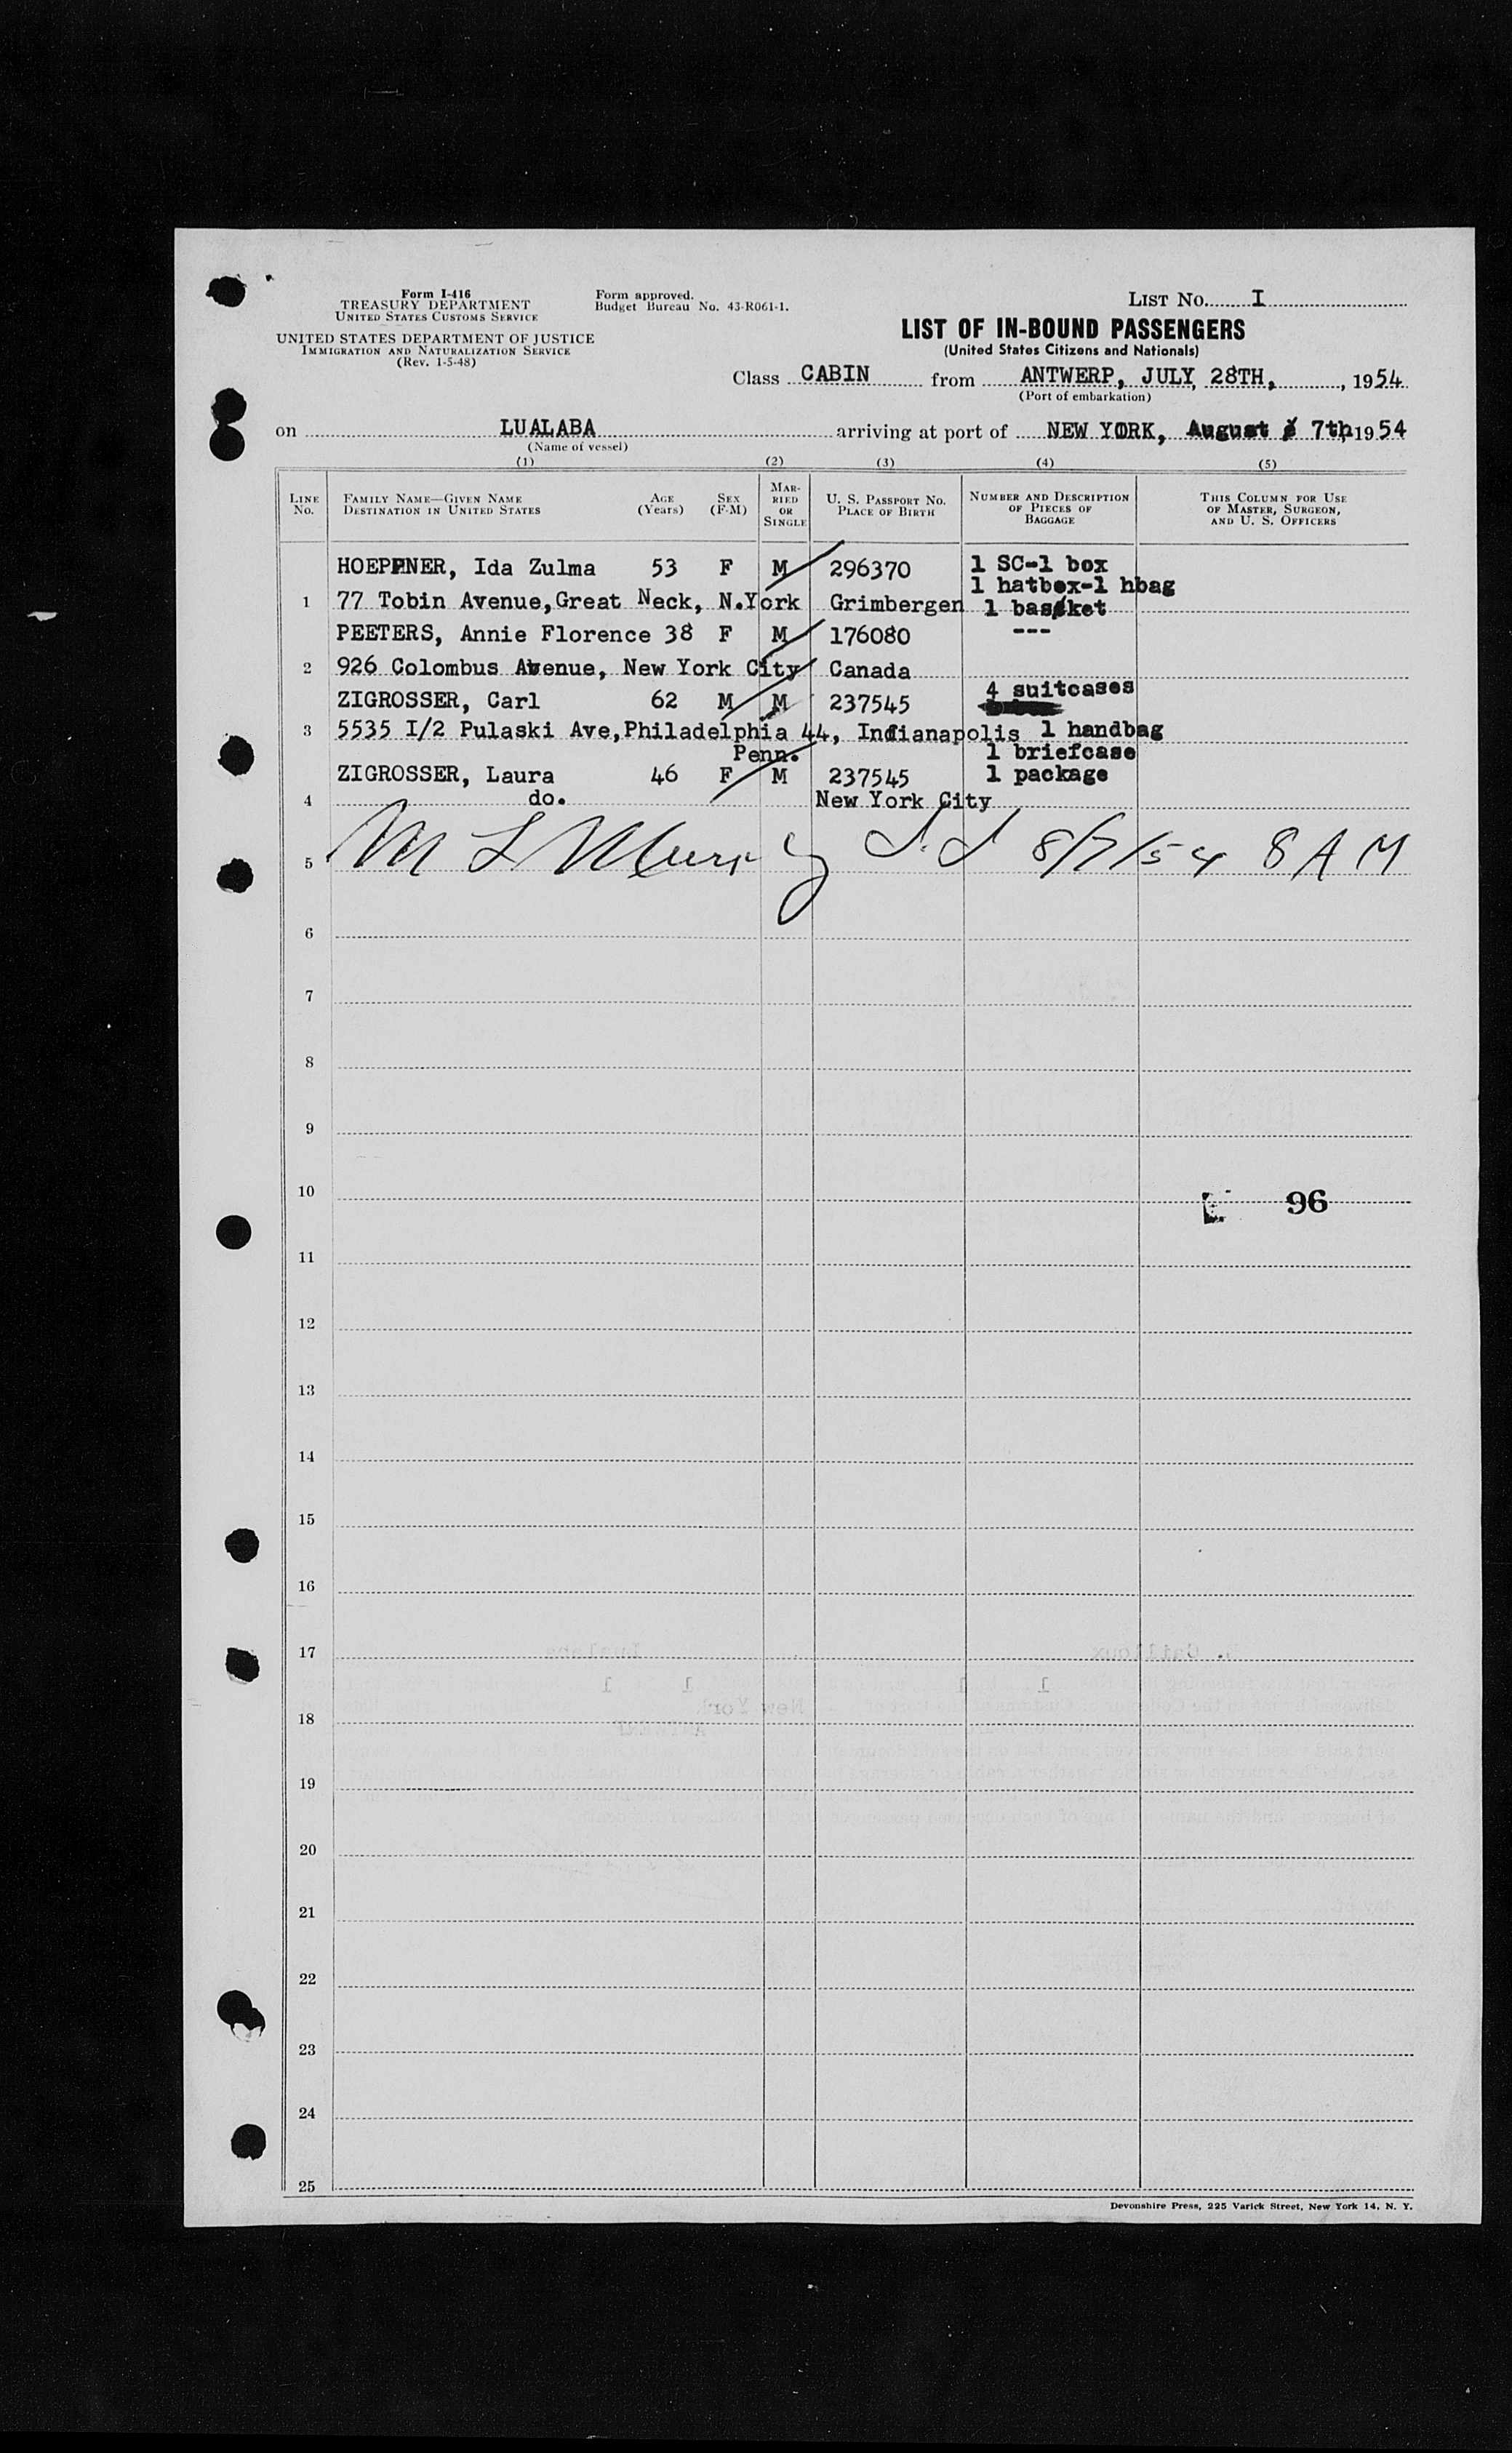 Form I-416
TREASURY DEPARTMENT
UNITED STATES CUSTOMS SERVICE
UNITED STATES DEPARTMENT OF JUSTICE
IMMIGRATION AND NATURALIZATION SERVICE
(Rev. 1-5-48)
Form approved.
Budget Bureau No. 43-R061-1.
LIST NO. I
LIST OF IN-BOUND PASSENGERS
(United States Citizens and Nationals)
Class CABIN from ANTWERP, JULY 28TH, , 1954
(Port of embarkation)
on LUALABA arriving at port of NEW YORK, August 7th 1954
(Name of vessel)
(1) (2) (3) (4) (5)
LINE NO. FAMILY NAME—GIVEN NAME DESTINATION IN UNITED STATES AGE (Years) SEX (F-M) MARRIED OR SINGLE U. S. PASSPORT NO. PLACE OF BIRTH NUMBER AND DESCRIPTION OF PIECES OF BAGGAGE THIS COLUMN FOR USE OF MASTER, SURGEON, AND U. S. OFFICERS
HOEPPNER, Ida Zulma 53 F M 296370 1 SC-1 box
1 hatbox-1 hbag
1 77 Tobin Avenue, Great Neck, N.York Grimbergen 1 basket
PEETERS, Annie Florence 38 F M 176080 ---
2 926 Colombus Avenue, New York City Canada
ZIGROSSER, Carl 62 M M 237545 4 suitcases
3 5535 I/2 Pulaski Ave, Philadelphia 44, Indianapolis 1 handbag
Penn. 1 briefcase
ZIGROSSER, Laura 46 F M 237545 1 package
4 do. New York City
5 M L Murry 8/7/54 8 A M
6
7
8
9
10 96
11
12
13
14
15
16
17
18
19
20
21
22
23
24
25
Devonshire Press, 225 Varick Street, New York 14, N. Y.